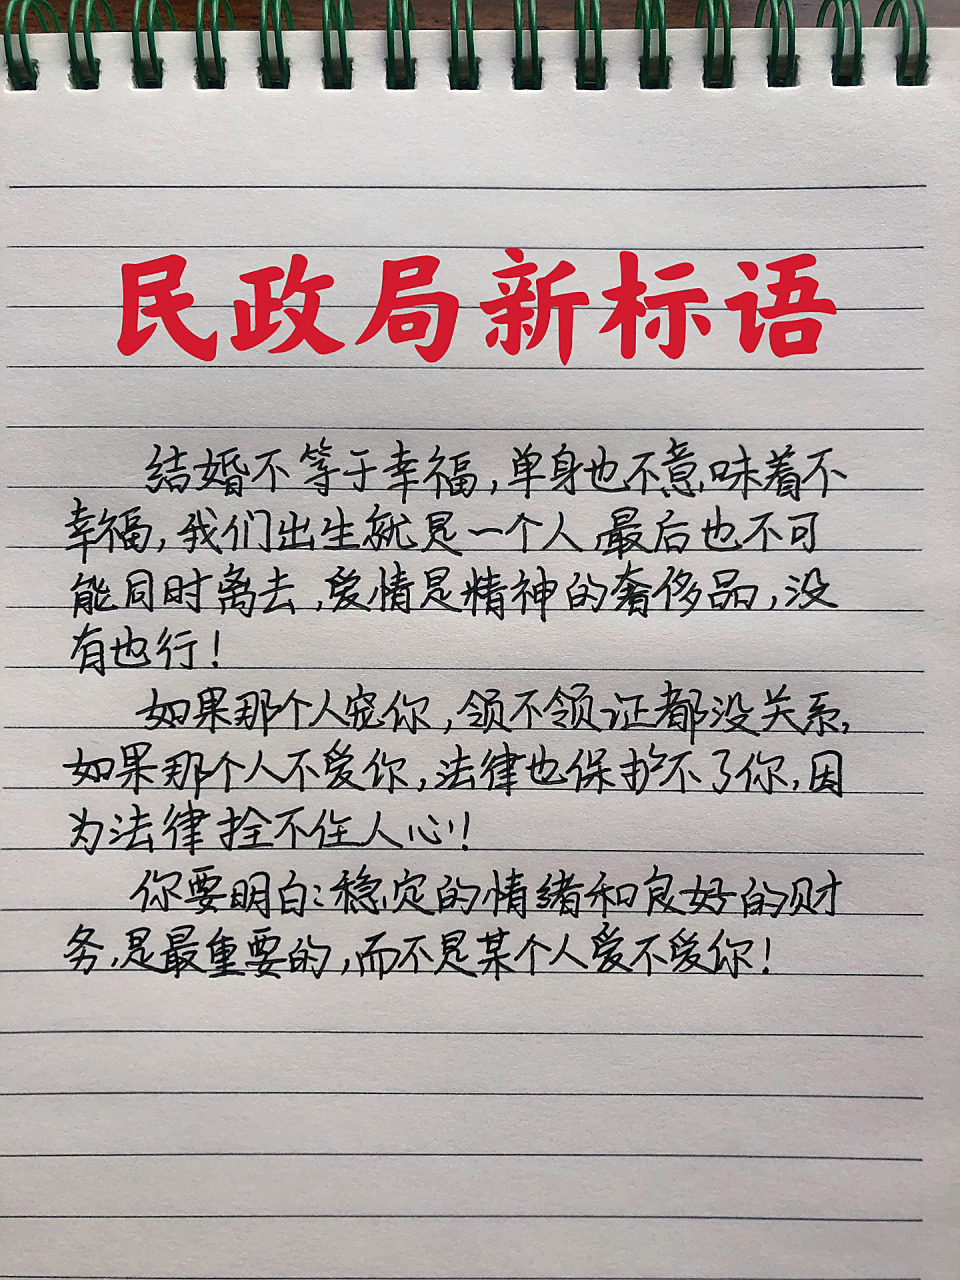 民政局新标语
结婚不等于幸福,单身也不意味着不
幸福,我们出生就是一个人,最后也不可
能同时离去,爱情是精神的奢侈品,没
有也行!
如果那个人宠你,领不领证都没关系,
如果那个人不爱你,法律也保护不了你,因
为法律拴不住人心!
你要明白:稳定的情绪和良好的财
务,是最重要的,而不是某个人爱不爱你!